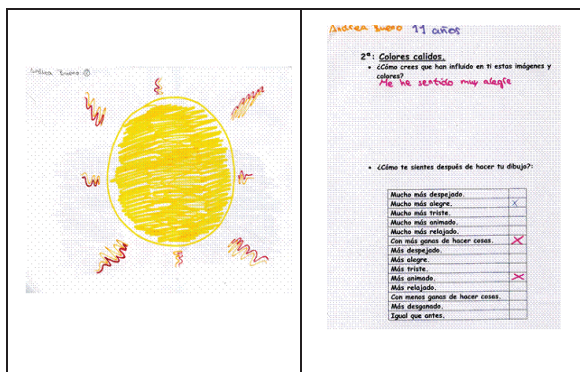 Andrea Bueno ②
Andrea Bueno 11 años
2º: Colores calidos.
• ¿Cómo crees que han influido en ti estas imágenes y
colores?
Me he sentido muy alegre
• ¿Cómo te sientes después de hacer tu dibujo?:
Mucho más despejado.
Mucho más alegre. X
Mucho más triste.
Mucho más animado.
Mucho más relajado.
Con más ganas de hacer cosas. X
Más despejado.
Más alegre.
Más triste.
Más animado. X
Más relajado.
Con menos ganas de hacer cosas.
Más desganado.
Igual que antes.